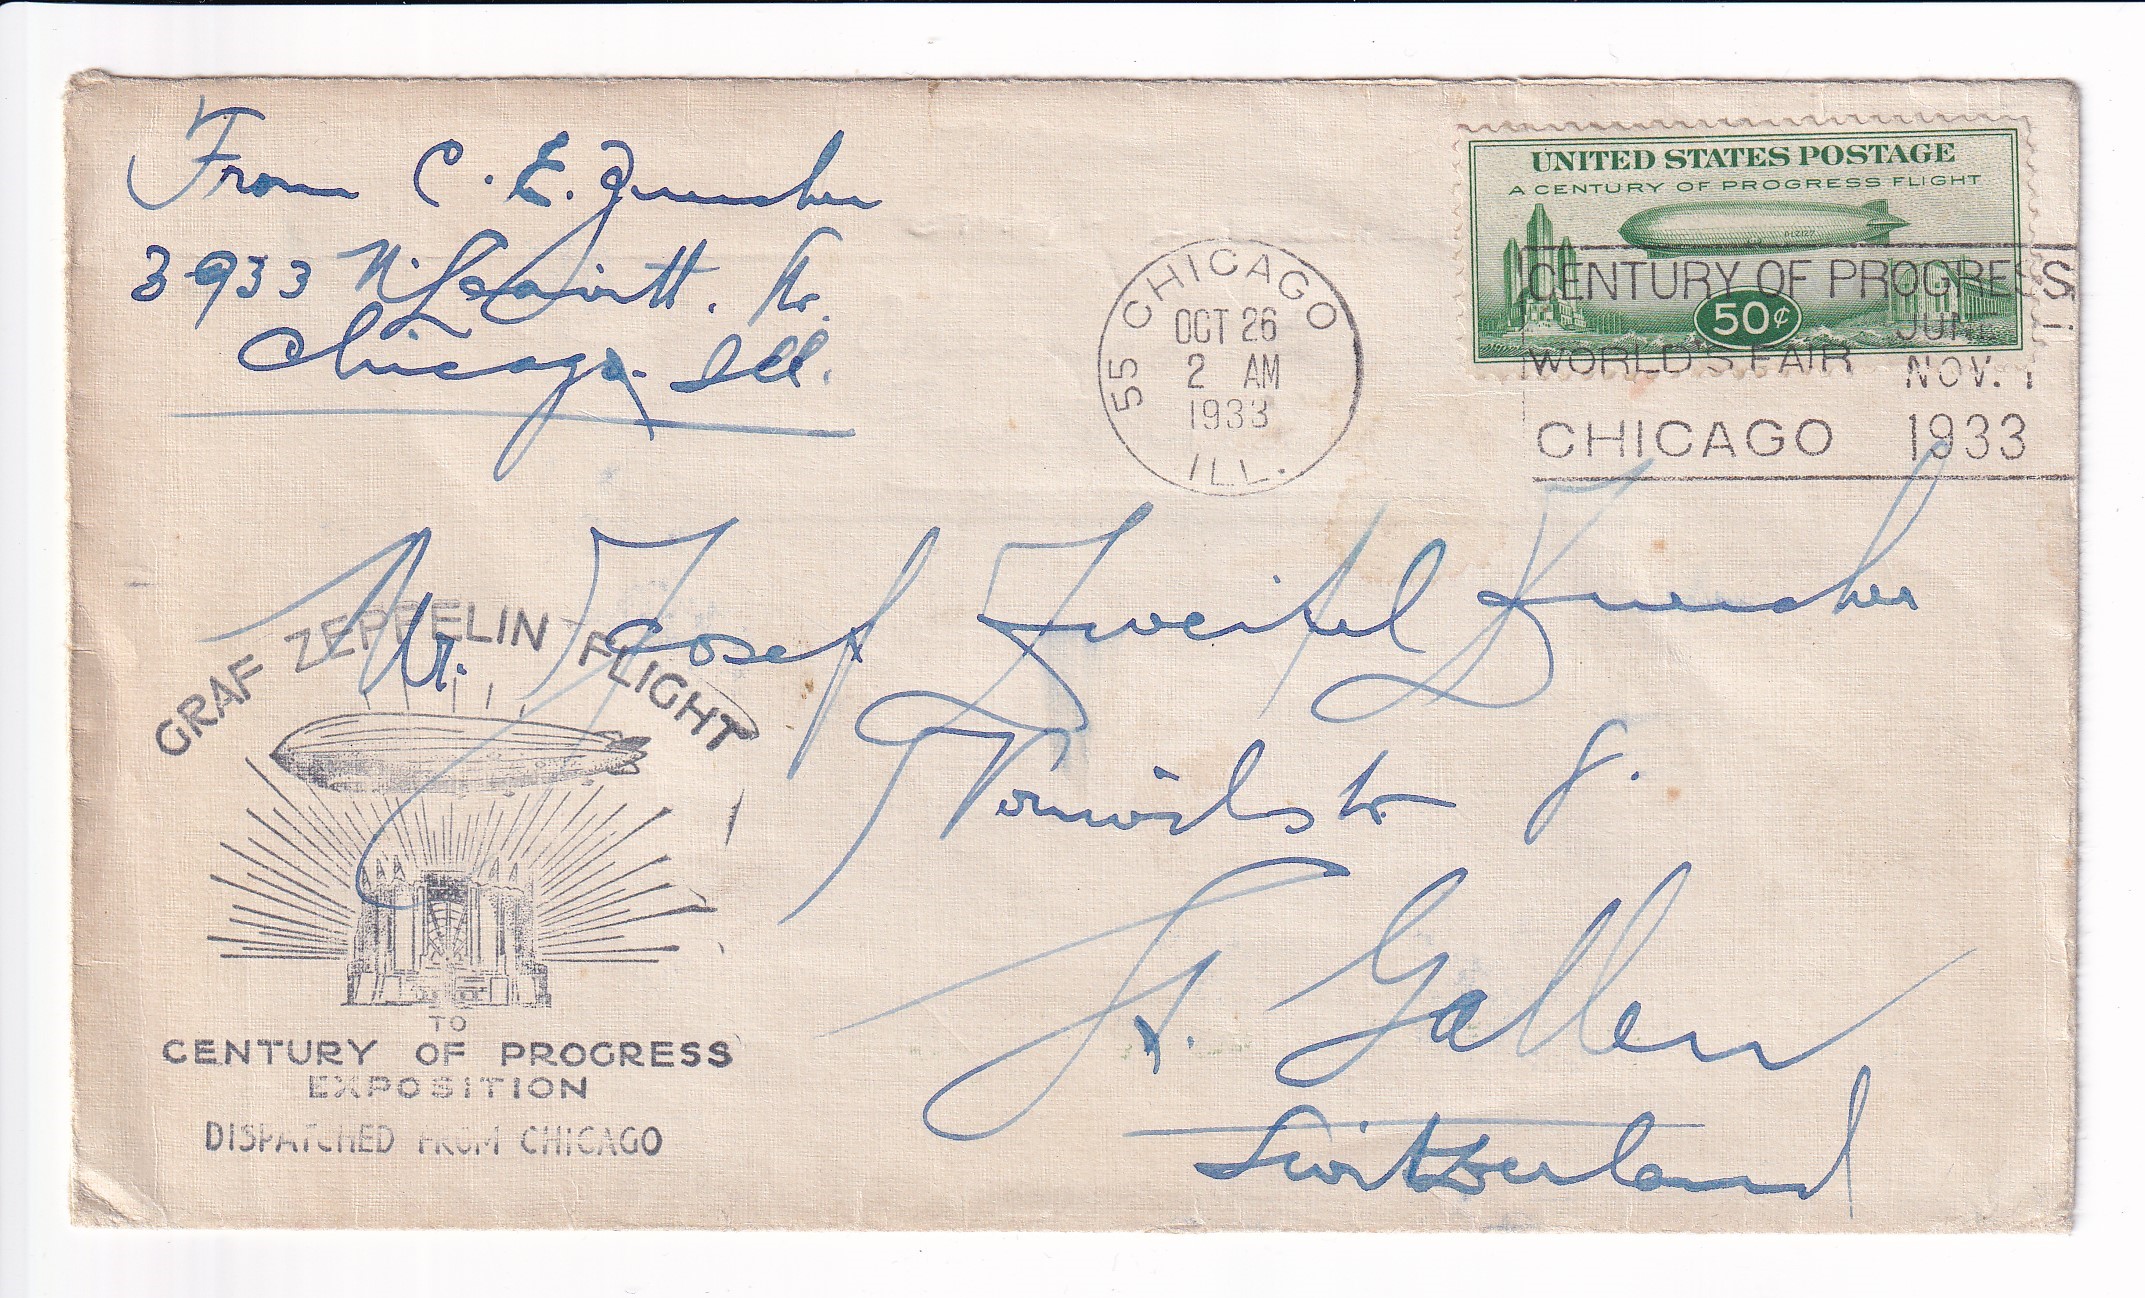 From C. E.
3933 N. Leavitt. Str.
Chicago. Ill.
UNITED STATES POSTAGE
A CENTURY OF PROGRESS FLIGHT
DLZ127
50¢
55 CHICAGO
OCT 26
2 AM
1933
ILL.
CENTURY OF PROGRESS
JUNE 1
WORLD'S FAIR NOV. 1
CHICAGO 1933
Mr. Josef Zweifel
8.
St. Gallen
Switzerland
GRAF ZEPPELIN FLIGHT
TO
CENTURY OF PROGRESS
EXPOSITION
DISPATCHED FROM CHICAGO